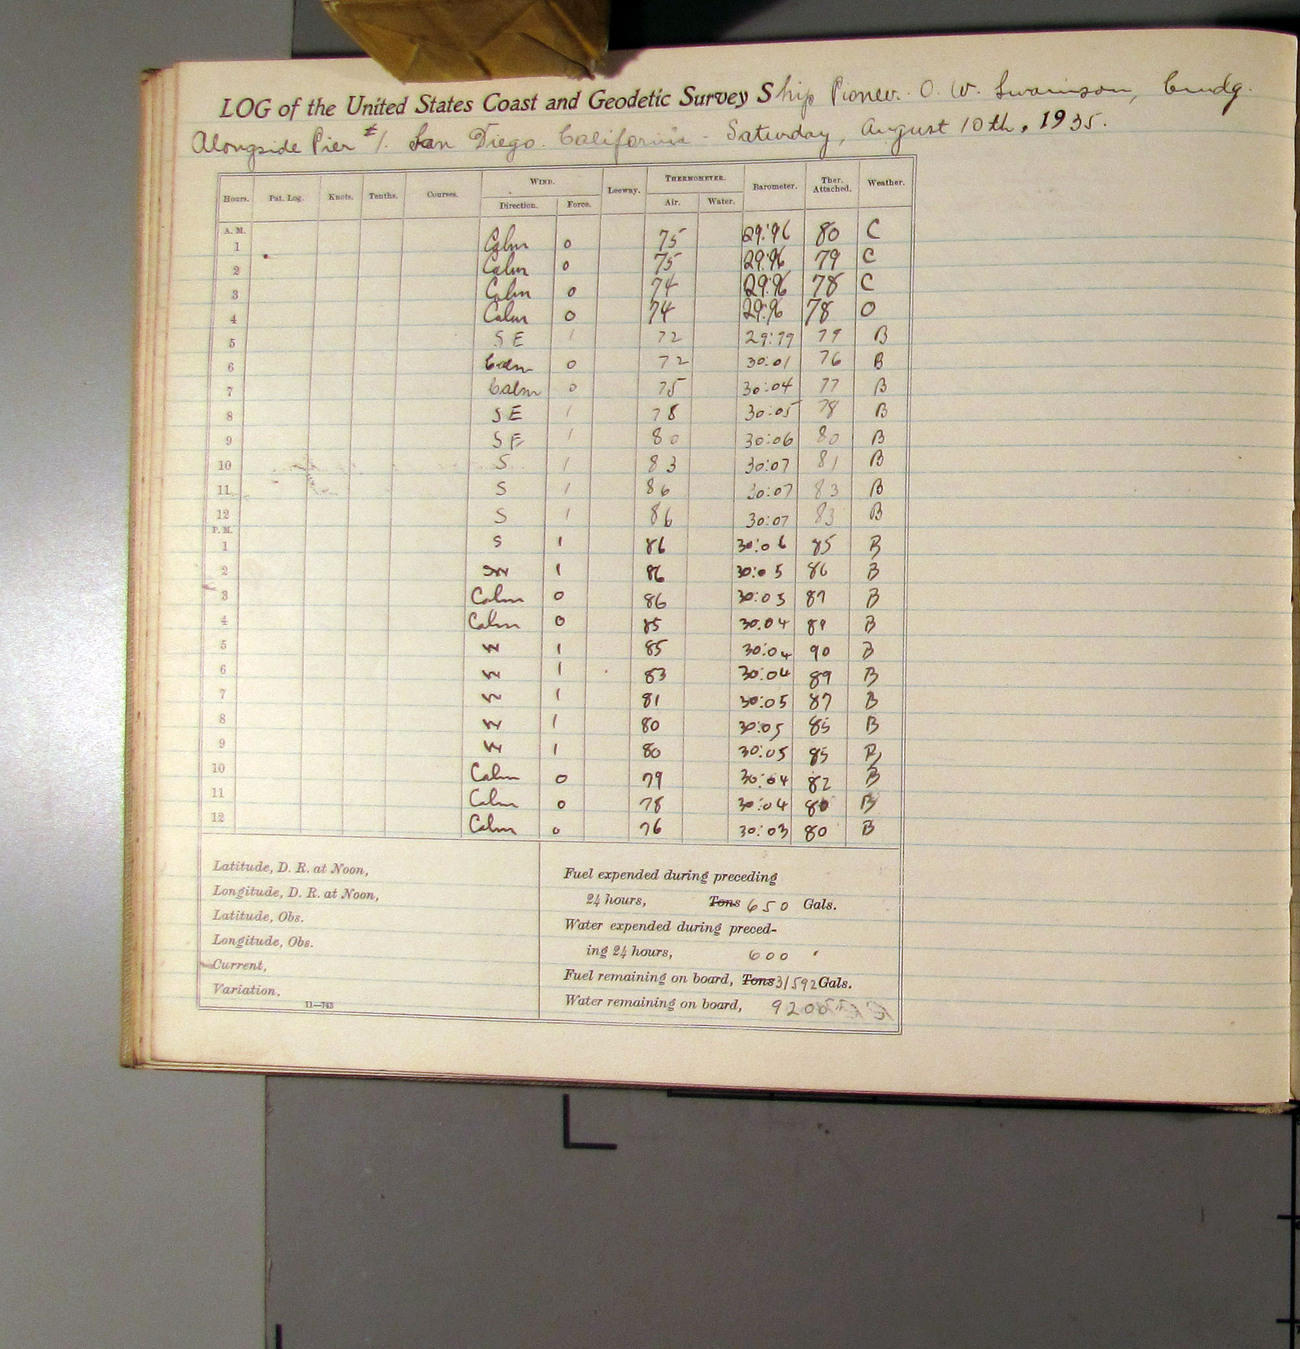 LOG of the United States Coast and Geodetic Survey Ship Pioneer. O. W. Swainson, Comdg.
Alongside Pier #1. San Diego. California - Saturday, August 10th, 1935.
Hours. Pat. Log. Knots. Tenths. Courses. WIND. Leeway. THERMOMETER. Barometer. Ther. Attached. Weather.
Direction. Force. Air. Water.
A. M.
1 Calm 0 75 29:96 80 C
2 Calm 0 75 29:96 79 C
3 Calm 0 74 29:96 78 C
4 Calm 0 74 29:96 78 O
5 SE 1 72 29:99 77 B
6 Calm 0 72 30:01 76 B
7 Calm 0 75 30:04 77 B
8 SE 1 78 30:05 78 B
9 SE 1 80 30:06 80 B
10 S 1 83 30:07 81 B
11 S 1 86 30:07 83 B
12 S 1 86 30:07 83 B
P. M.
1 S 1 86 30:06 85 B
2 SW 1 86 30:05 86 B
3 Calm 0 86 30:05 87 B
4 Calm 0 85 30.04 89 B
5 W 1 85 30:04 90 B
6 W 1 83 30:04 89 B
7 W 1 81 30:05 87 B
8 W 1 80 30:05 85 B
9 W 1 80 30:05 85 B
10 Calm 0 79 30:04 82 B
11 Calm 0 78 30:04 80 B
12 Calm 0 76 30:03 80 B
Latitude, D. R. at Noon,
Longitude, D. R. at Noon,
Latitude, Obs.
Longitude, Obs.
Current,
Variation.
11—743
Fuel expended during preceding
24 hours, Tons 650 Gals.
Water expended during preced-
ing 24 hours, 600 "
Fuel remaining on board, Tons 31592 Gals.
Water remaining on board,